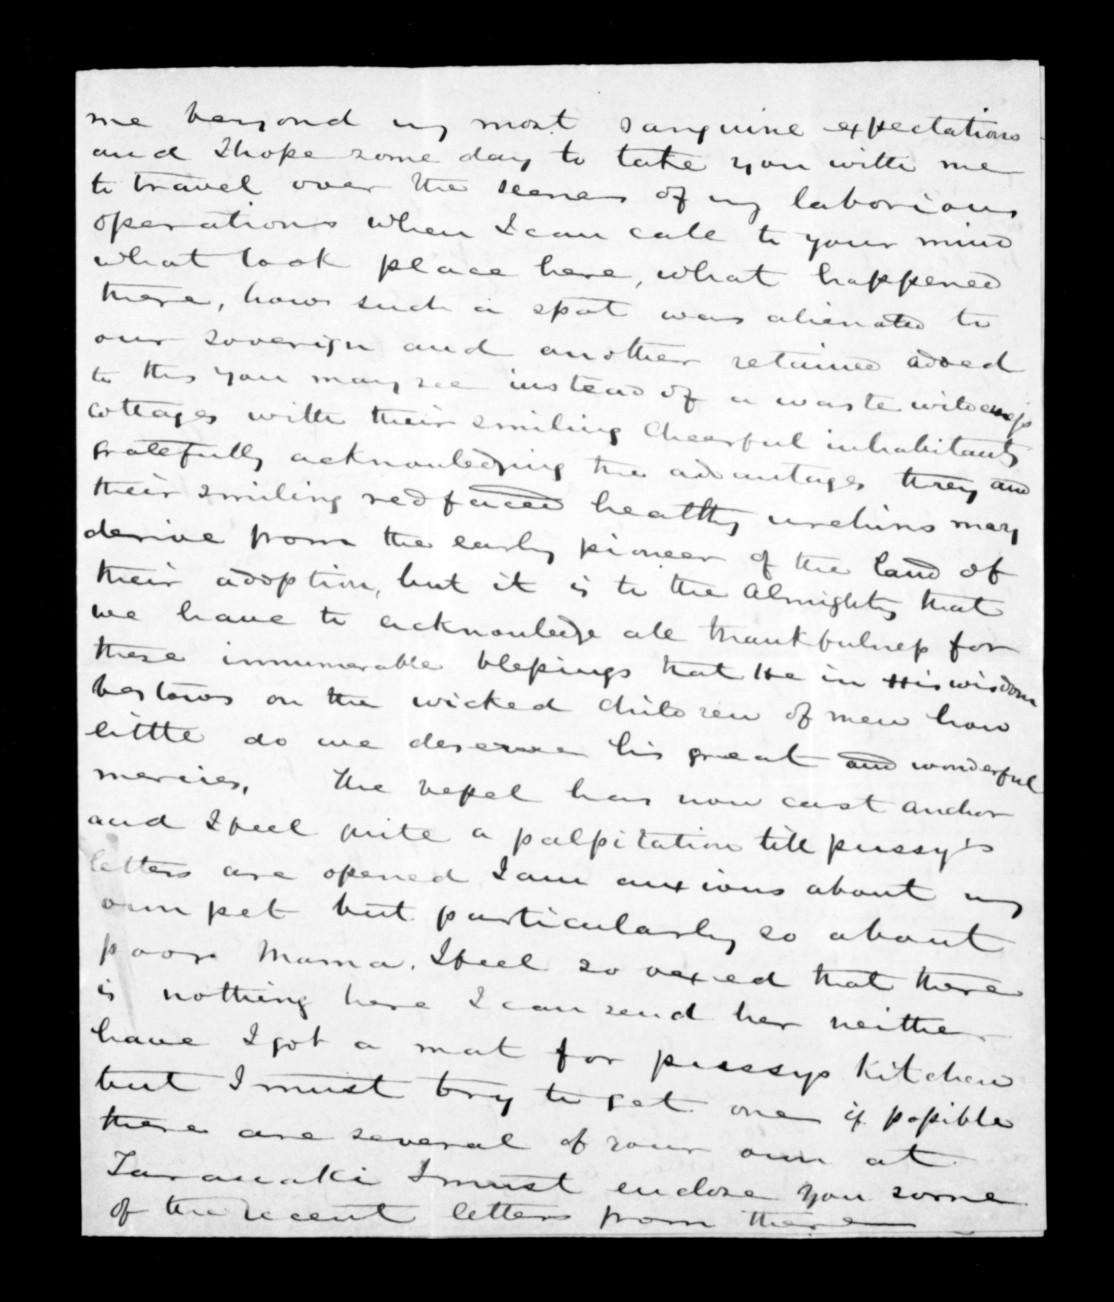 me beyond my most sanguine expectations
and I hope some day to take you with me
to travel over the scenes of my laborious
operations when I can call to your mind
what took place here, what happened
there, how such a spot was alienated to
our soverign and another retained added
to this you may see instead of a waste wilderness
cottages with their smiling cheerful inhabitants
gratefully acknowledging the advantages they and
their smiling redfaced healthy urchins may
derive from the early pioneer of the land of
their adoption, but it is to the Almighty that
we have to acknowledge all thankfulness for
these innumerable blessings that He in His wisdom
bestows on the wicked children of men how
little do we deserve his great and wonderful
mercies, The vessel has now cast anchor
and I feel quite a palpitation till pussy's
letters are opened I am anxious about my
own pet but particularly so about
poor Mama. I feel so vexed that there
is nothing here I can send her neither
have I got a mat for pussys Kitchen
but I must try to get one if possible
there are several of your own at
Taranaki I must enclose you some
of the recent letters from there